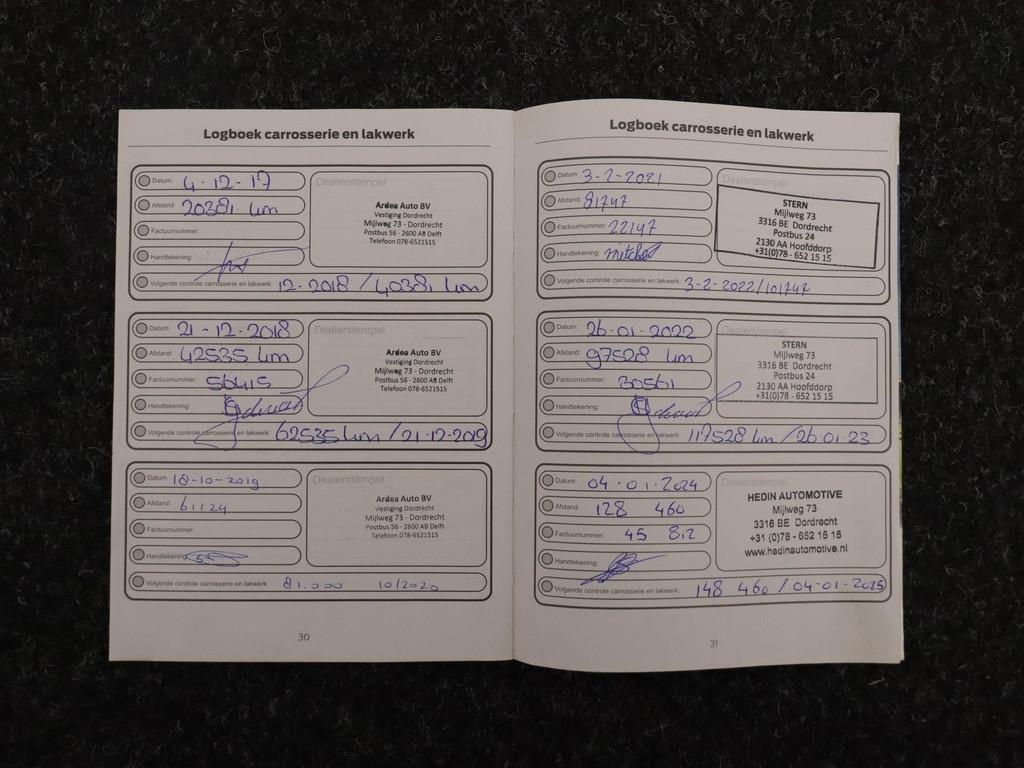 Logboek carrosserie en lakwerk
Datum: 4-12-17
Afstand: 20381 km
Factuurnummer:
Handtekening:
Volgende controle carrosserie en lakwerk: 12-2018 / 40381 km
Dealerstempel
Ardea Auto BV
Vestiging Dordrecht
Mijlweg 73 - Dordrecht
Postbus 56 - 2600 AB Delft
Telefoon 078-6521515
Datum: 21-12-2018
Afstand: 42535 km
Factuurnummer: 56415
Handtekening:
Volgende controle carrosserie en lakwerk: 62535 km / 21-12-2019
Dealerstempel
Ardea Auto BV
Vestiging Dordrecht
Mijlweg 73 - Dordrecht
Postbus 56 - 2600 AB Delft
Telefoon 078-6521515
Datum: 18-10-2019
Afstand: 61124
Factuurnummer:
Handtekening:
Volgende controle carrosserie en lakwerk: 81.000 10/2020
Dealerstempel
Ardea Auto BV
Vestiging Dordrecht
Mijlweg 73 - Dordrecht
Postbus 56 - 2600 AB Delft
Telefoon 078-6521515
30
Logboek carrosserie en lakwerk
Datum: 3-2-2021
Afstand: 81747
Factuurnummer: 22147
Handtekening:
Volgende controle carrosserie en lakwerk: 3-2-2022/101747
Dealerstempel
STERN
Mijlweg 73
3316 BE Dordrecht
Postbus 24
2130 AA Hoofddorp
+31(0)78 - 652 15 15
Datum: 26-01-2022
Afstand: 97528 km
Factuurnummer: 30561
Handtekening:
Volgende controle carrosserie en lakwerk: 117528 km / 26 01-23
Dealerstempel
STERN
Mijlweg 73
3316 BE Dordrecht
Postbus 24
2130 AA Hoofddorp
+31(0)78 - 652 15 15
Datum: 04-01-2024
Afstand: 128 460
Factuurnummer: 45 812
Handtekening:
Volgende controle carrosserie en lakwerk: 148 460 / 04-01-2025
Dealerstempel
HEDIN AUTOMOTIVE
Mijlweg 73
3316 BE Dordrecht
+31 (0)78 - 652 15 15
www.hedinautomotive.nl
31